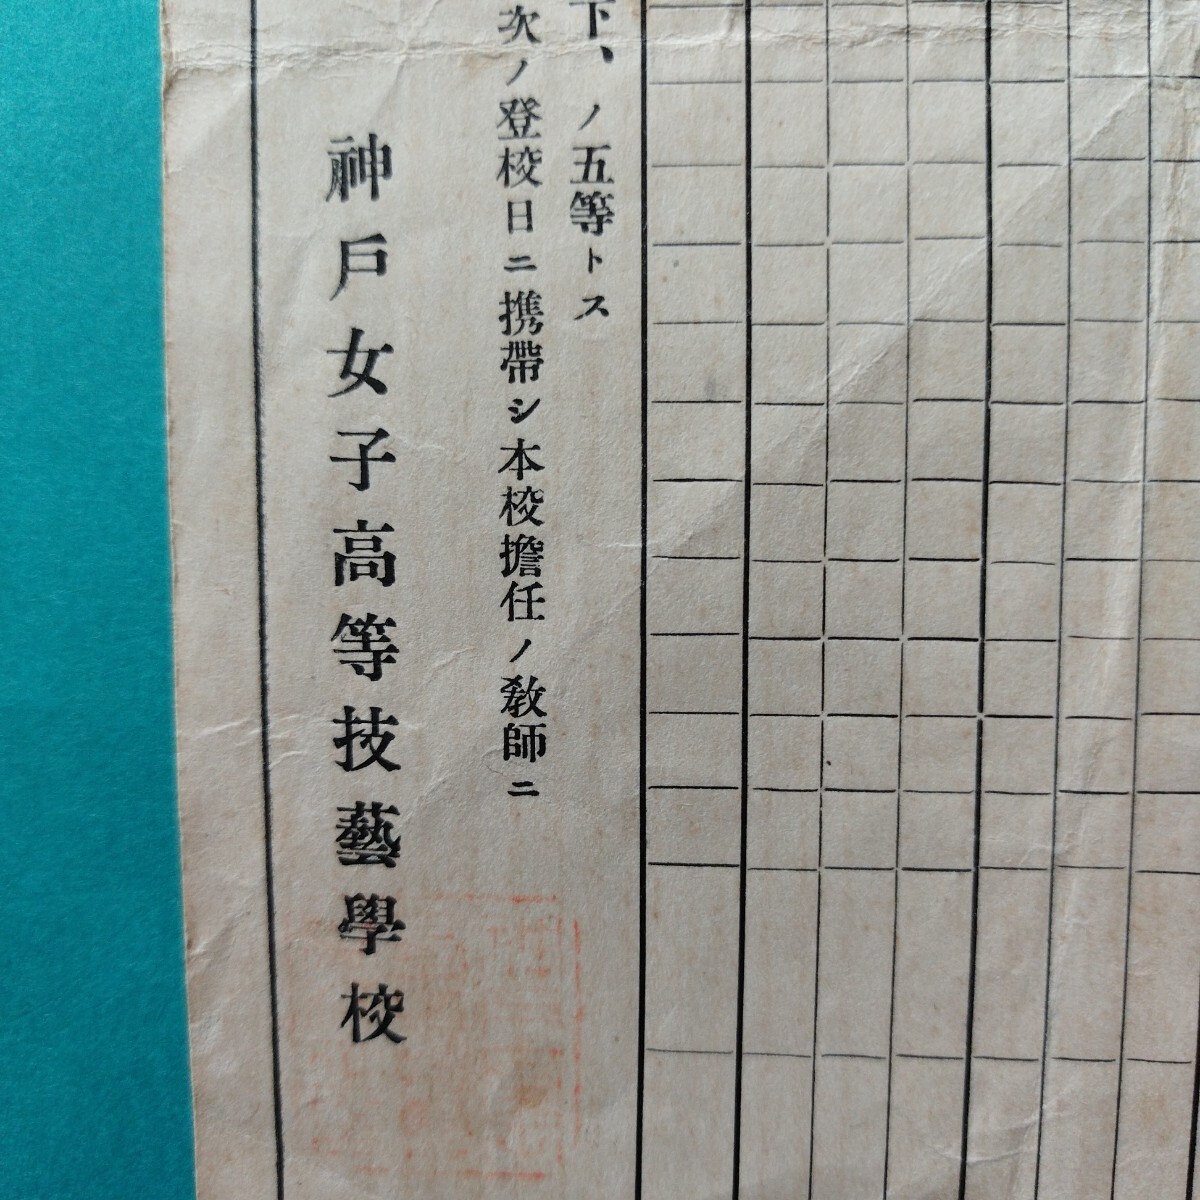 下、ノ五等トス
次ノ登校日ニ携帶シ本校擔任ノ教師ニ
神戶女子高等技藝學校